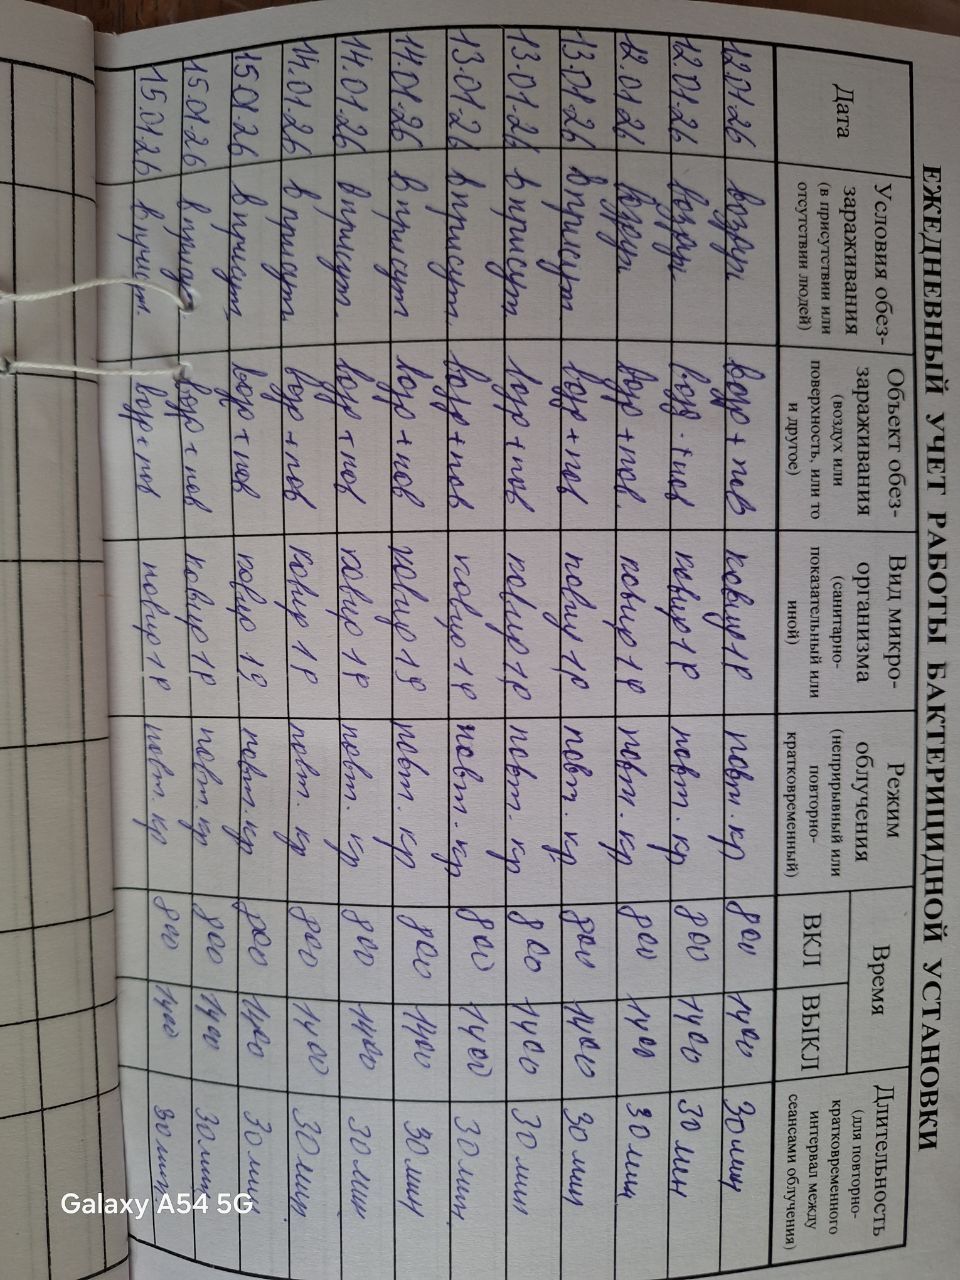 ЕЖЕДНЕВНЫЙ УЧЕТ РАБОТЫ БАКТЕРИЦИДНОЙ УСТАНОВКИ
Дата
Условия обез-
зараживания
(в присутствии или
отсутствии людей)
Объект обез-
зараживания
(воздух или
поверхность, или то
и другое)
Вид микро-
организма
(санитарно-
показательный или
иной)
Режим
облучения
(неприрывный или
повторно-
кратковременный)
Время
ВКЛ
ВЫКЛ
Длительность
(для повторно-
кратковременного
интервал между
сеансами облучения)
12.01.26 возд + пов ковид повт. кр 800 1400 30 мин
12.01.26 возд + пов ковид повт. кр 800 1400 30 мин
12.01.26 возд + пов. ковид повт. кр 800 1400 30 мин
13.01.26 в присут. возд + пов ковид повт. кр. 800 1400 30 мин
13.01.26 в присут. возд + пов ковид повт. кр 800 1400 30 мин
13.01.26 в присут. возд + пов ковид повт. кр 800 1400 30 мин.
14.01.26 в присут возд + пов ковид повт. кр 800 1400 30 мин
14.01.26 в присут. возд + пов ковид повт. кр 800 1400 30 мин
14.01.26 в присут. возд + пов ковид повт. кр 800 1400 30 мин.
15.01.26 в присут возд + пов ковид повт. кр 800 1400 30 мин
15.01.26 в присут. возд + пов ковид повт. кр 800 1400 30 мин
15.01.26 в присут. возд + пов ковид повт. кр 800 1400 30 мин
Galaxy A54 5G